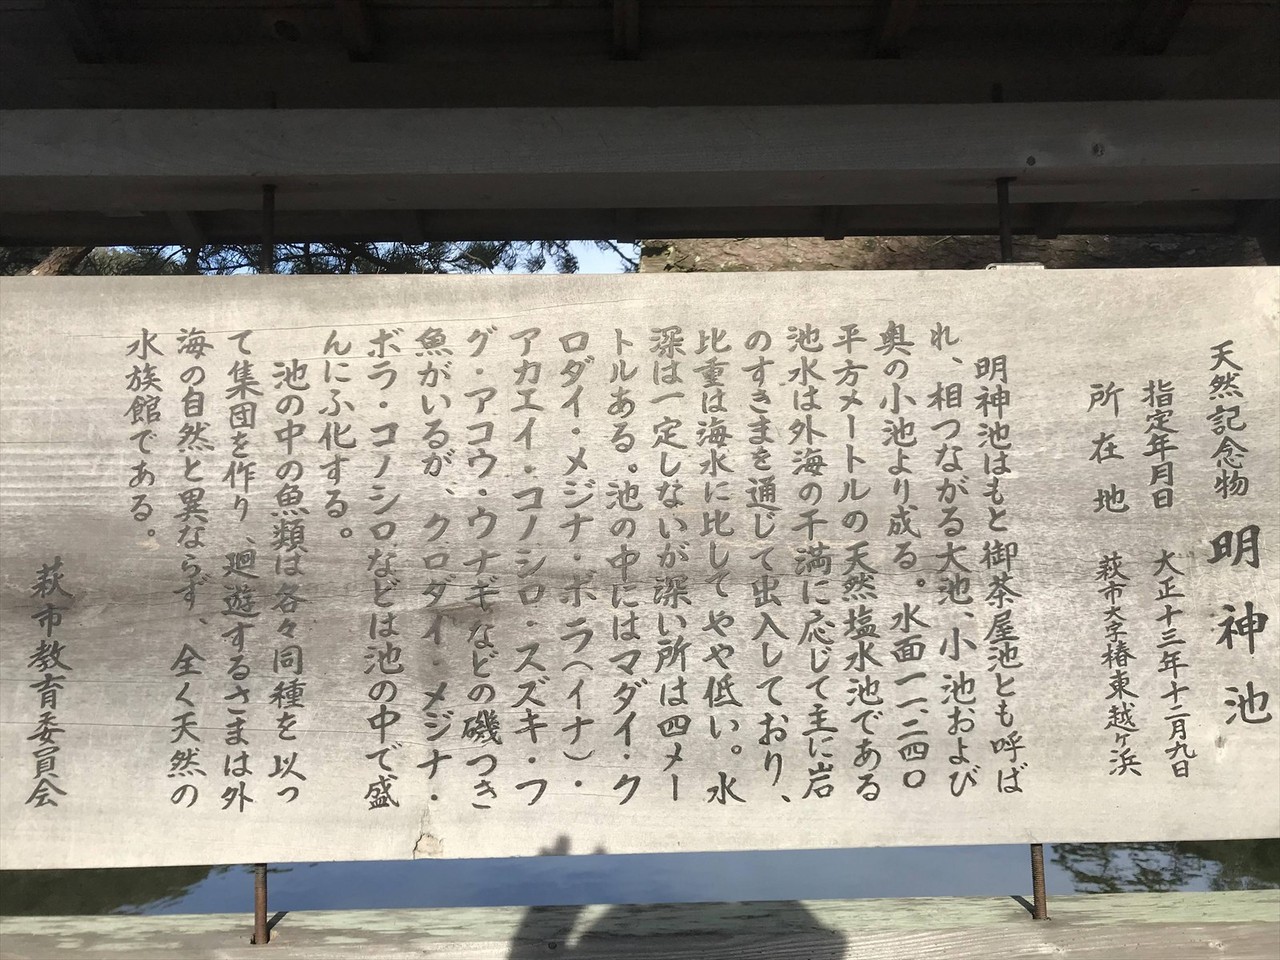 天然記念物 明神池
指定年月日 大正十三年十二月九日
所在地 萩市大字椿東越ヶ浜
明神池はもと御茶屋池とも呼ば
れ、相つながる大池、小池および
奥の小池より成る。水面一一、二四〇
平方メートルの天然塩水池である
池水は外海の干満に応じて主に岩
のすきまを通じて出入しており、
比重は海水に比してやや低い。水
深は一定しないが深い所は四メー
トルある。池の中にはマダイ・ク
ロダイ・メジナ・ボラ(イナ)・
アカエイ・コノシロ・スズキ・フ
グ・アコウ・ウナギなどの磯つき
魚がいるが、クロダイ・メジナ・
ボラ・コノシロなどは池の中で盛
んにふ化する。
池の中の魚類は各々同種を以っ
て集団を作り、廻遊するさまは外
海の自然と異ならず、全く天然の
水族館である。
萩市教育委員会